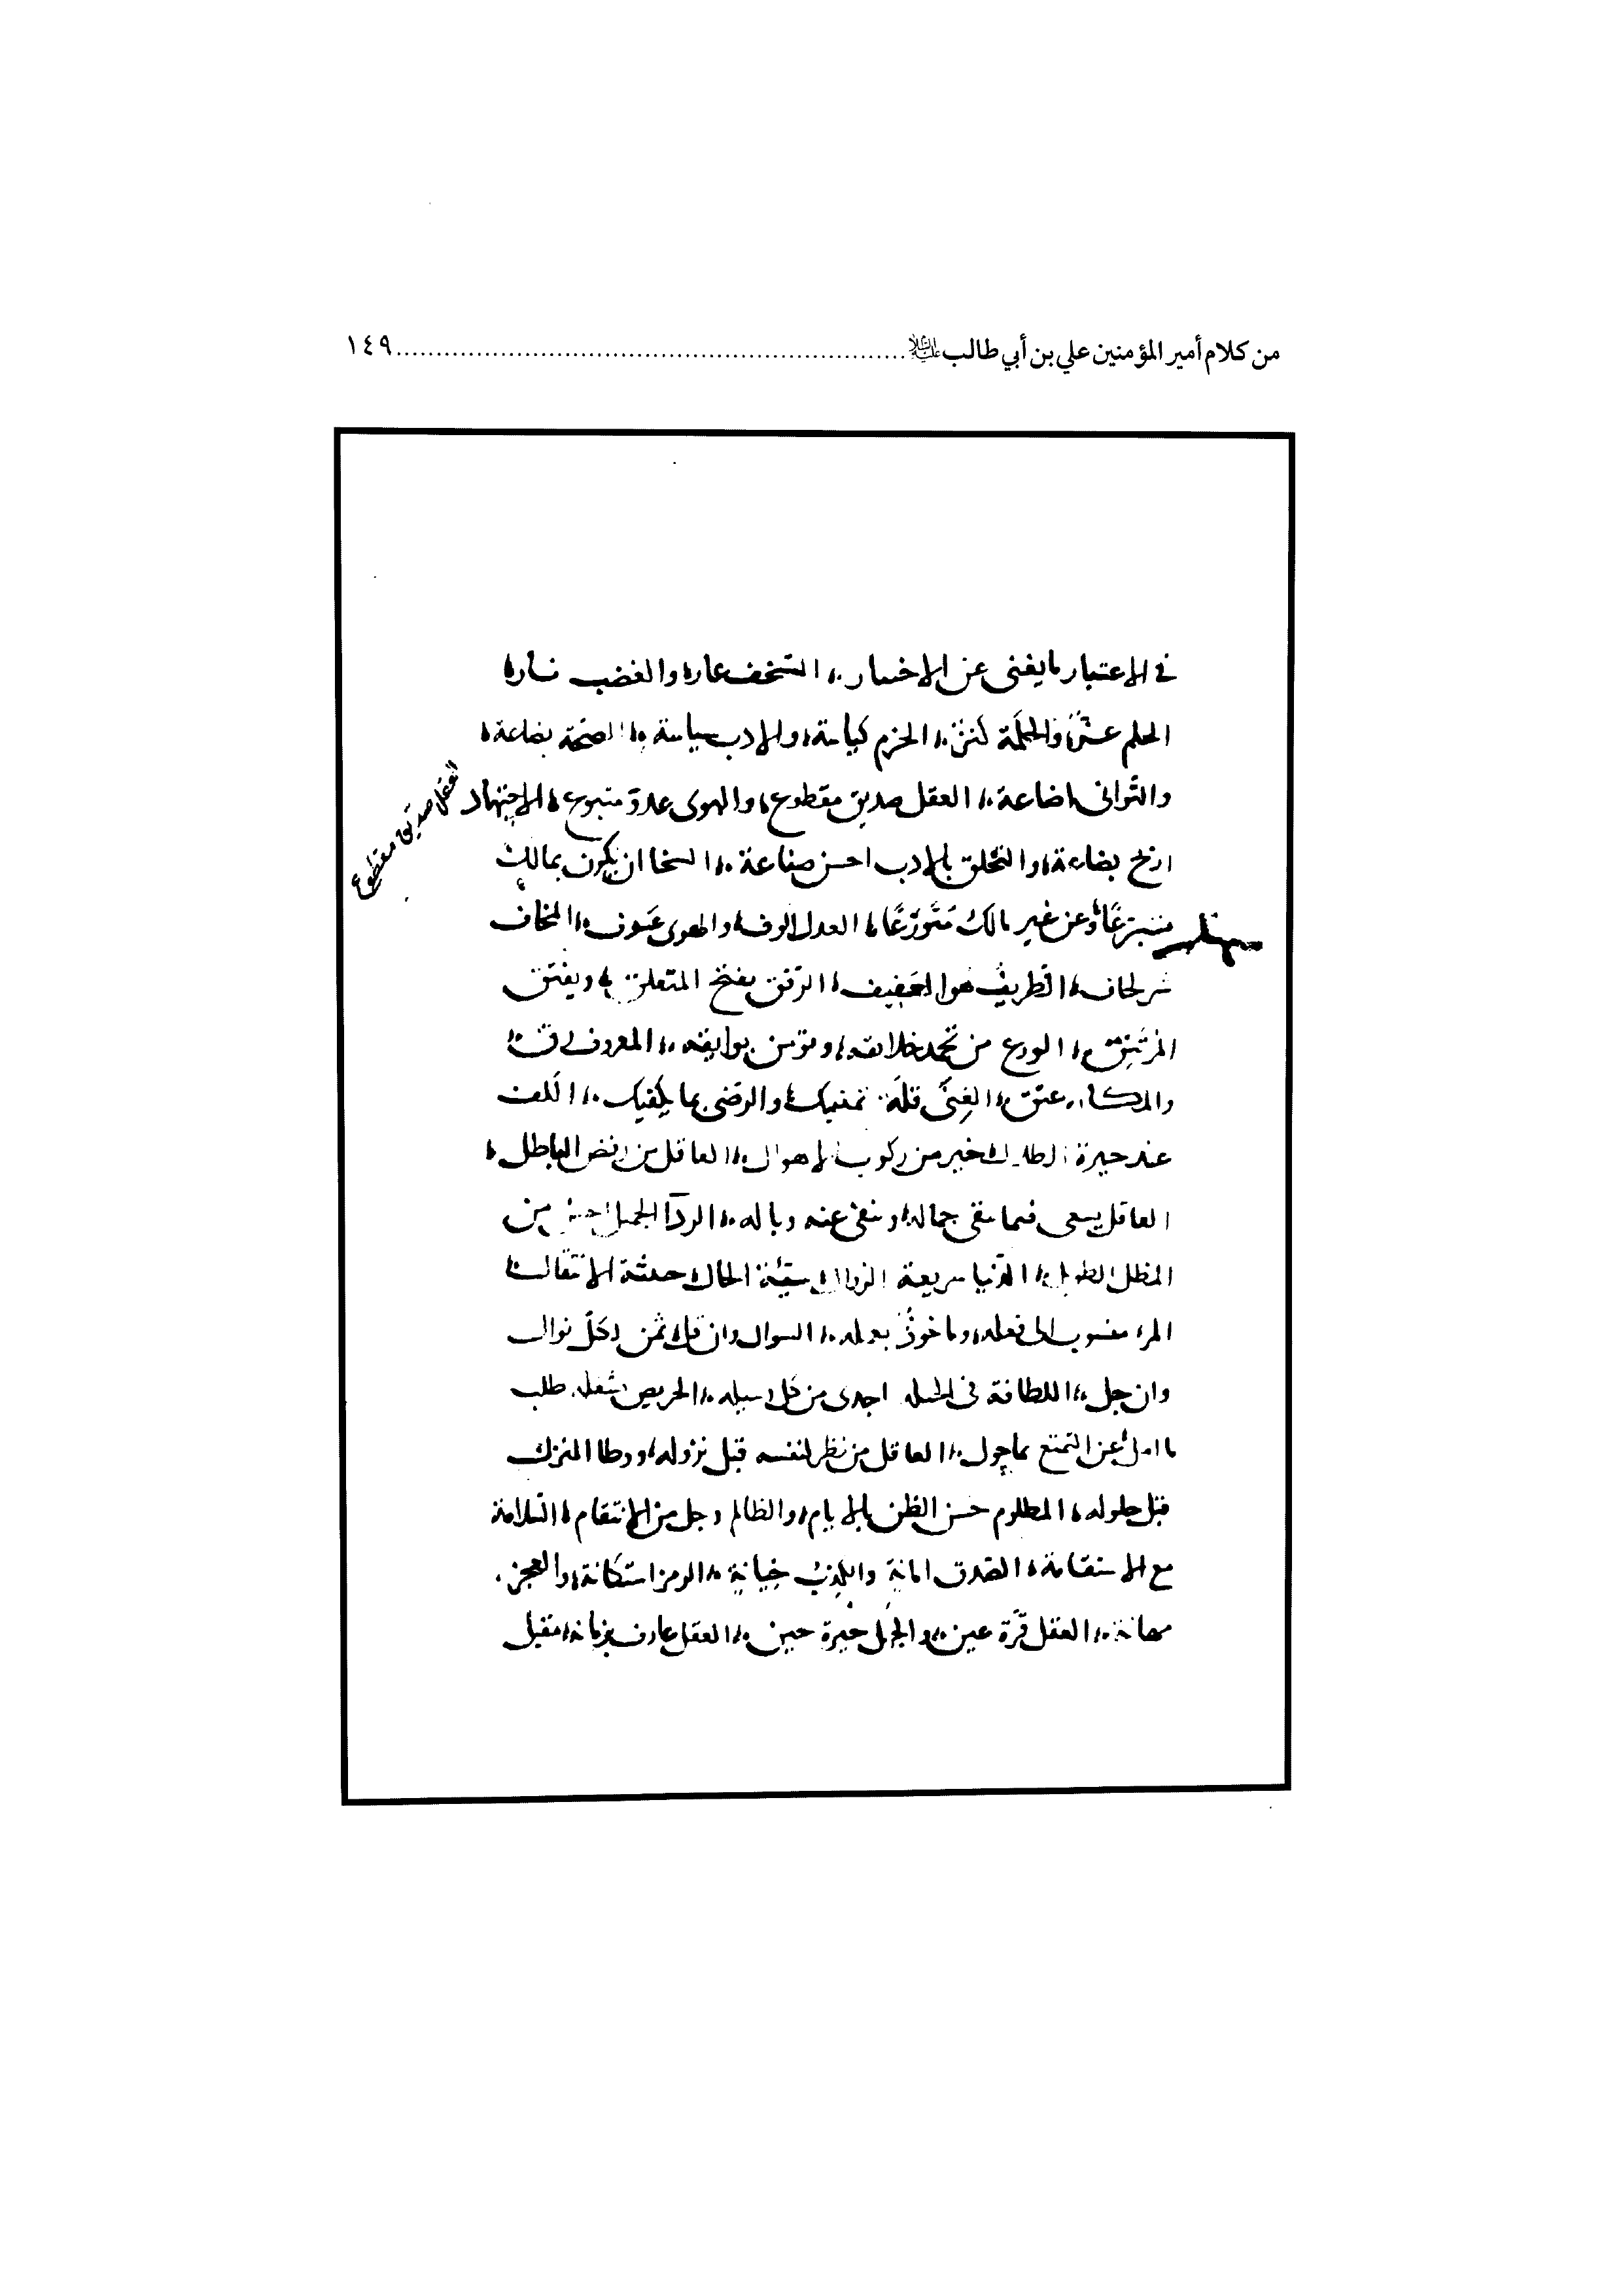 من كلام أمير المؤمنين علي بن أبي طالب ........ ١٤٩
في الاعتبار ما يغنى عن الاختبار، السخف عار، والغضب نار،
الحلم عشرة والحكمة كنز، الحزم كياسة، والادب سياسة، الصحة بضاعة،
والتوانى اضاعة، العقل صديق مقطوع، والهوى عدوّ متبوع، الاجتهاد
العقل صديق مقطوع
اربح بضاعة، والتخلق بالادب احسن صناعة، السخا ان يكون بمالك
متبرّعًا، وعن غير مالك متورّعًا، العدل الوف، والهوى عسوف،
شر، الظريف هو العفيف، الرفق يفتح المتعلق، ويفتق
المرتتق، الورع من تحمد خلائقه، وتؤمن بوايقه، المعروف رق،
والمكافاة عتق، الغِنَى قلة تمنيك، والرضى بما يكفيك، الكف
عند حيرة الضلال خير من ركوب الاهوال، العاقل من رفض الباطل،
العاقل يسعى فيما يبقى جماله، وينفى عنه وباله، الردّ الجميل احسن من
المطل الطويل، الدّنيا سريعة الزوال سيّئة الحال حثيثة الانتقال،
المرء منسوب الى فعله، وماخوذ بعمله، السوال وان قل ثمن لكلّ نوال
وان جل، اللطافة فى الحيله اجدى من كل وسيله، الحريص شغله طلب
ما امل عن التمتع بما، العاقل من نظر لنفسه قبل نزوله، ووطا المنزل
قبل حلوله، المظلوم حسن الظن بالايام، والظالم وجل من الانتقام، السّلامة
مع الاستقامة، الصّدق امانة والكذب خيانة، الرمز استكانة، والعجز
مهانة، العقل قرّة عين، والجهل حيرة حين، العقل عارف بزمانه، مقبل